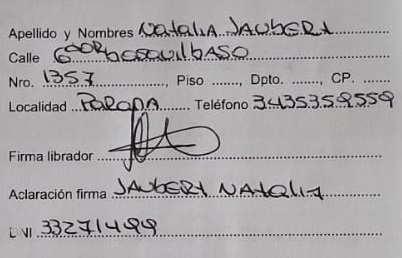 Apellido y Nombres Natalia Jaubert
Calle
Nro. 1357, Piso ......, Dpto. ......, CP. ......
Localidad Parana Teléfono 3435359559
Firma librador
Aclaración firma Jaubert Natalia
DNI 33271499